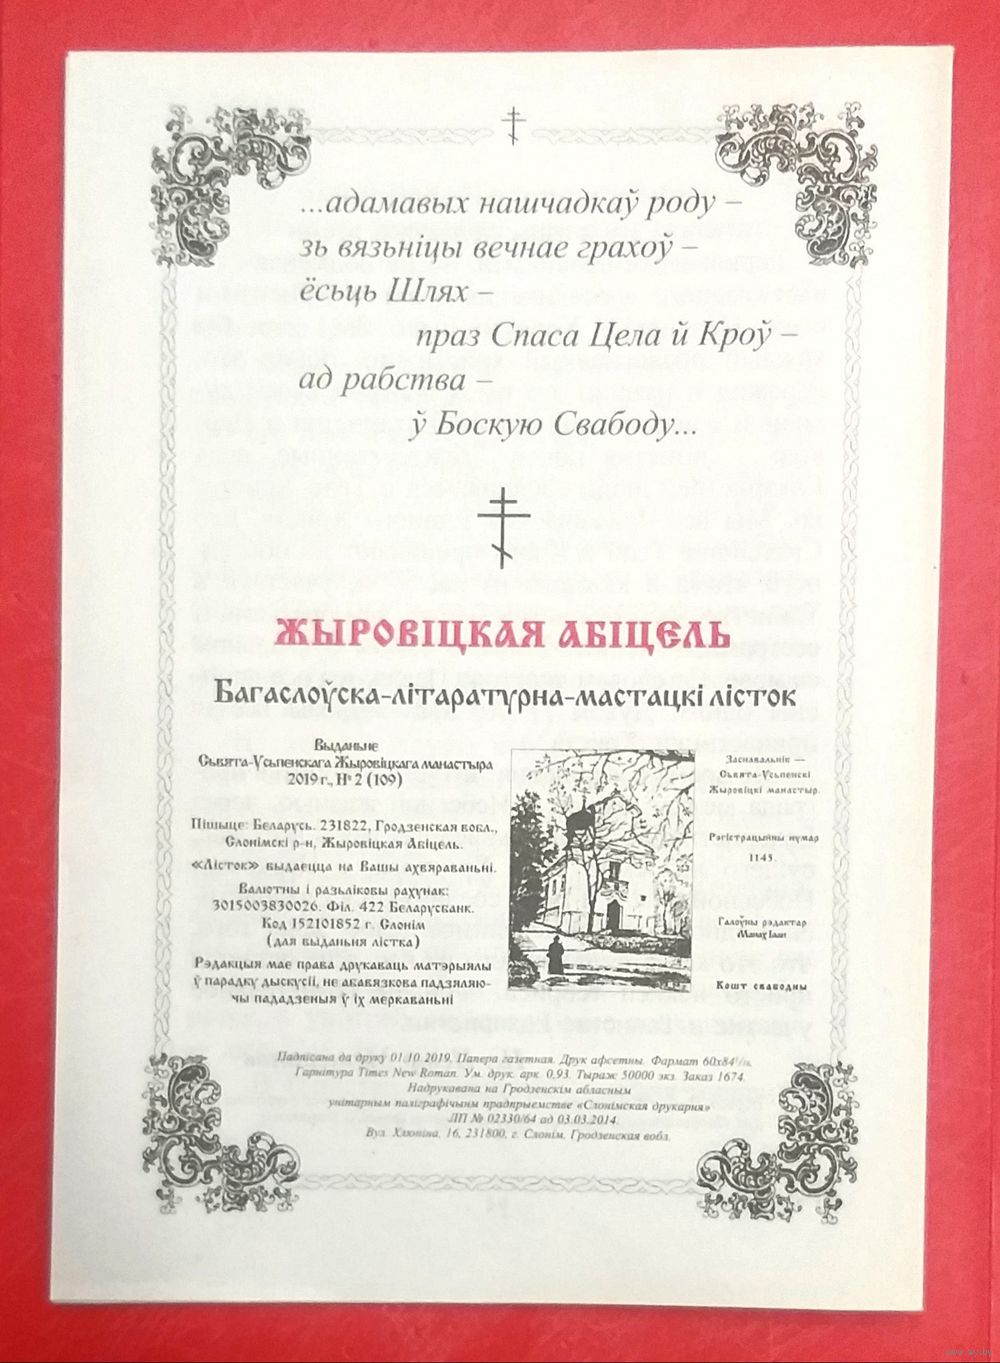 ...адамавых нашчадкаў роду –
зь вязьніцы вечнае грахоў –
ёсьць Шлях –
праз Спаса Цела й Кроў –
ад рабства –
ў Боскую Свабоду...
ЖЫРОВІЦКАЯ АБІЦЕЛЬ
Багаслоўска-літаратурна-мастацкі лісток
Выданьне
Сьвята-Усьпенскага Жыровіцкага манастыра
2019 г., № 2 (109)
Пішыце: Беларусь. 231822, Гродзенская вобл.,
Слонімскі р-н, Жыровіцкая Абіцель.
«Лісток» выдаецца на Вашы ахвяраваньні.
Валютны і разьліковы рахунак:
3015003830026. Філ. 422 Беларусбанк.
Код 152101852 г. Слонім
(для выданьня лістка)
Рэдакцыя мае права друкаваць матэрыялы
ў парадку дыскусіі, не абавязкова падзяляю-
чы пададзеныя ў іх меркаваньні
Заснавальнік —
Сьвята-Усьпенскі
Жыровіцкі манастыр.
Рэгістрацыйны нумар
1145.
Галоўны рэдактар
Манах Іаан
Кошт свабодны
Падпісана да друку 01.10.2019. Папера газетная. Друк афсетны. Фармат 60х84
Гарнітура Times New Roman. Ум. друк. арк. 0,93. Тыраж 50000 экз. Заказ 1674.
Надрукавана на Гродзенскім абласным
унітарным паліграфічным прадпрыемстве «Слонімская друкарня»
ЛП № 02330/64 ад 03.03.2014.
Вул. Хлюпіна, 16, 231800, г. Слонім, Гродзенская вобл.